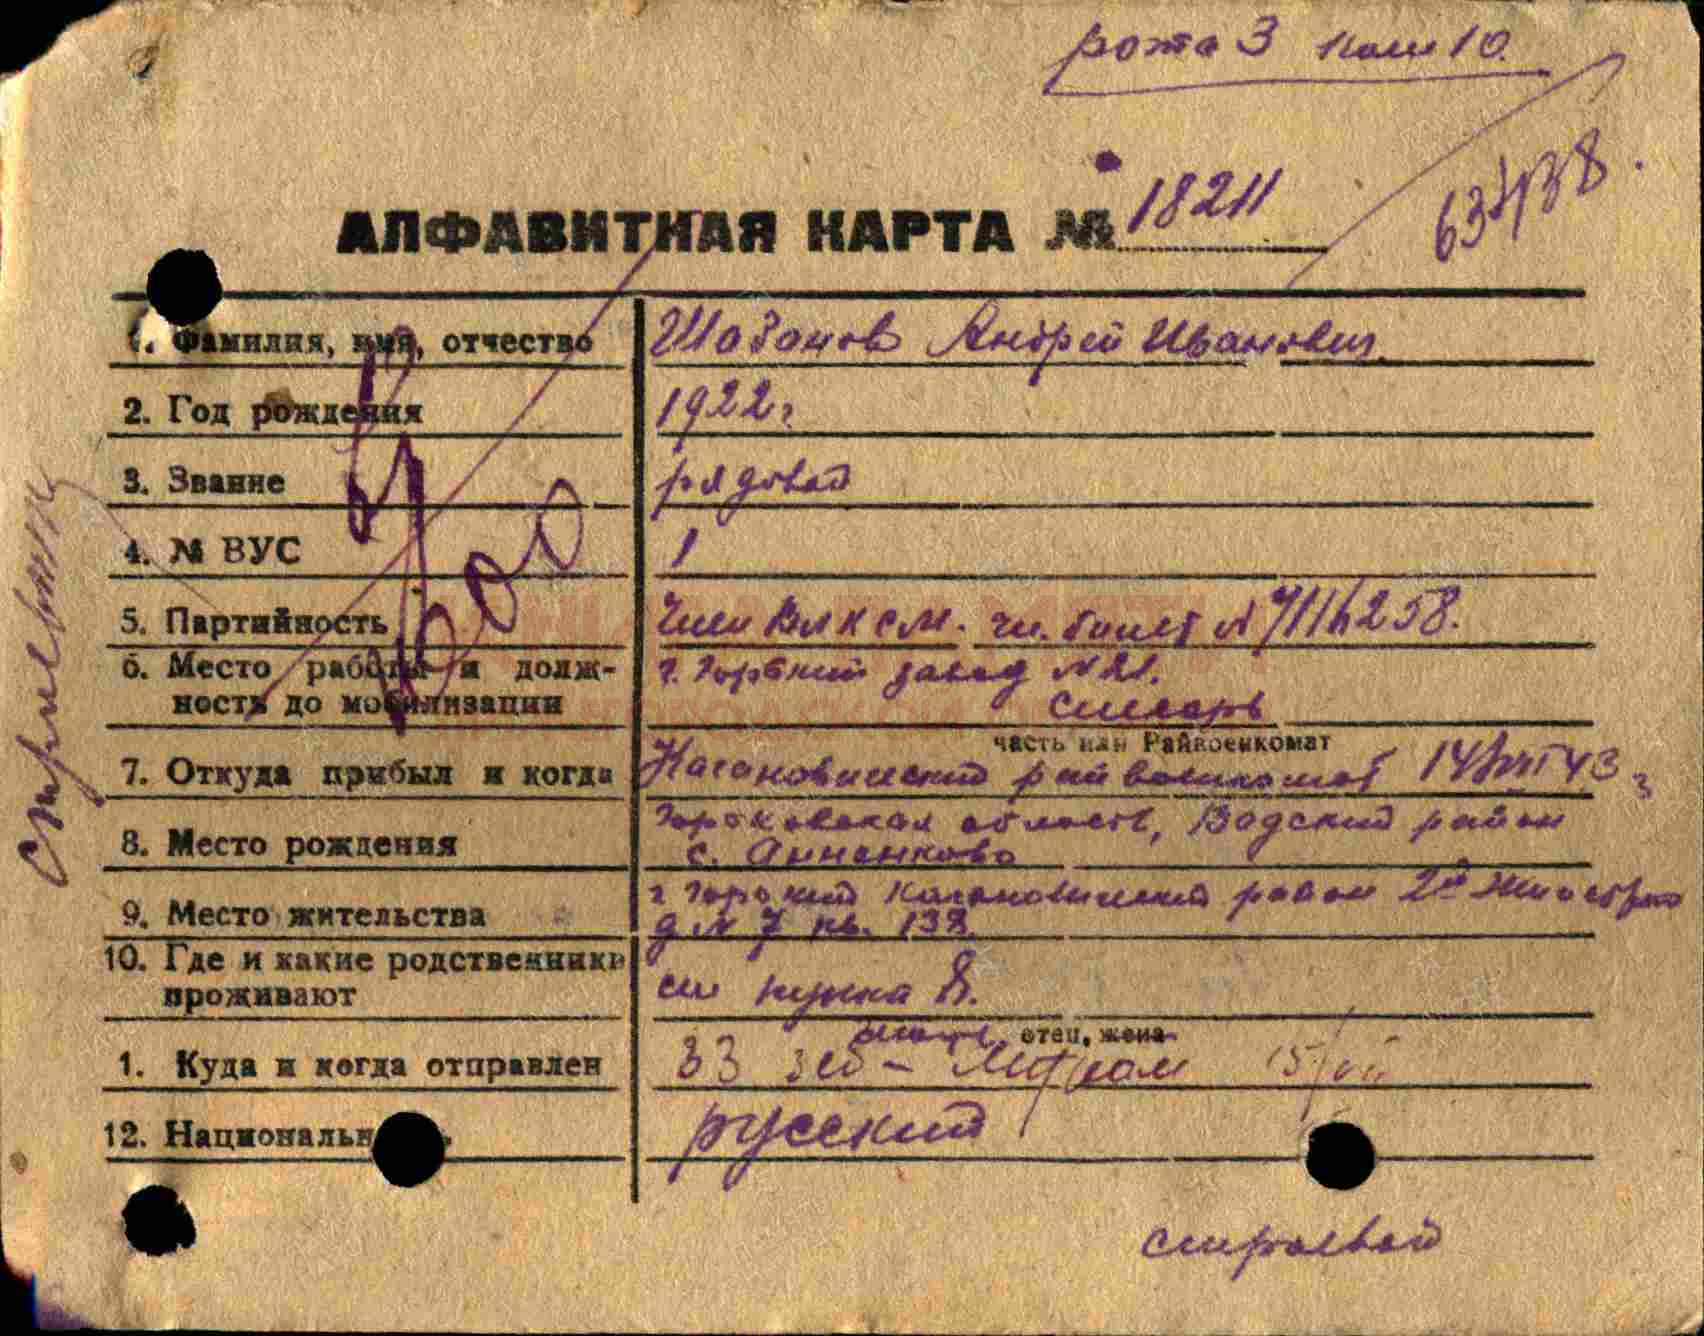 рота 3 ком 10.
АЛФАВИТНАЯ КАРТА № 18211
1. Фамилия, имя, отчество Шабанов Андрей Иванович
2. Год рождения 1922 г
3. Звание рядовой
4. № ВУС 1
5. Партийность член ВЛКСМ. чл. билет №
6. Место работы и долж-
г. Горький завод № 21.
ность до мобилизации слесарь
часть или Райвоенкомат
7. Откуда прибыл и когда Кагановический райвоенкомат 14/VIII 43 г
Горьковская область, Вадский район
8. Место рождения с. Анненково
г Горький Кагановический район 2й
9. Место жительства д. № 7 кв. 132
10. Где и какие родственники
проживают см пункт 8.
мать, отец, жена
1. Куда и когда отправлен 33
12. Националь русский
строевой